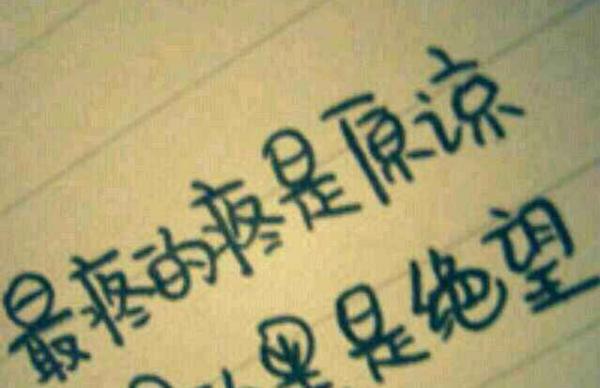 最疼的疼是原谅
黑是绝望